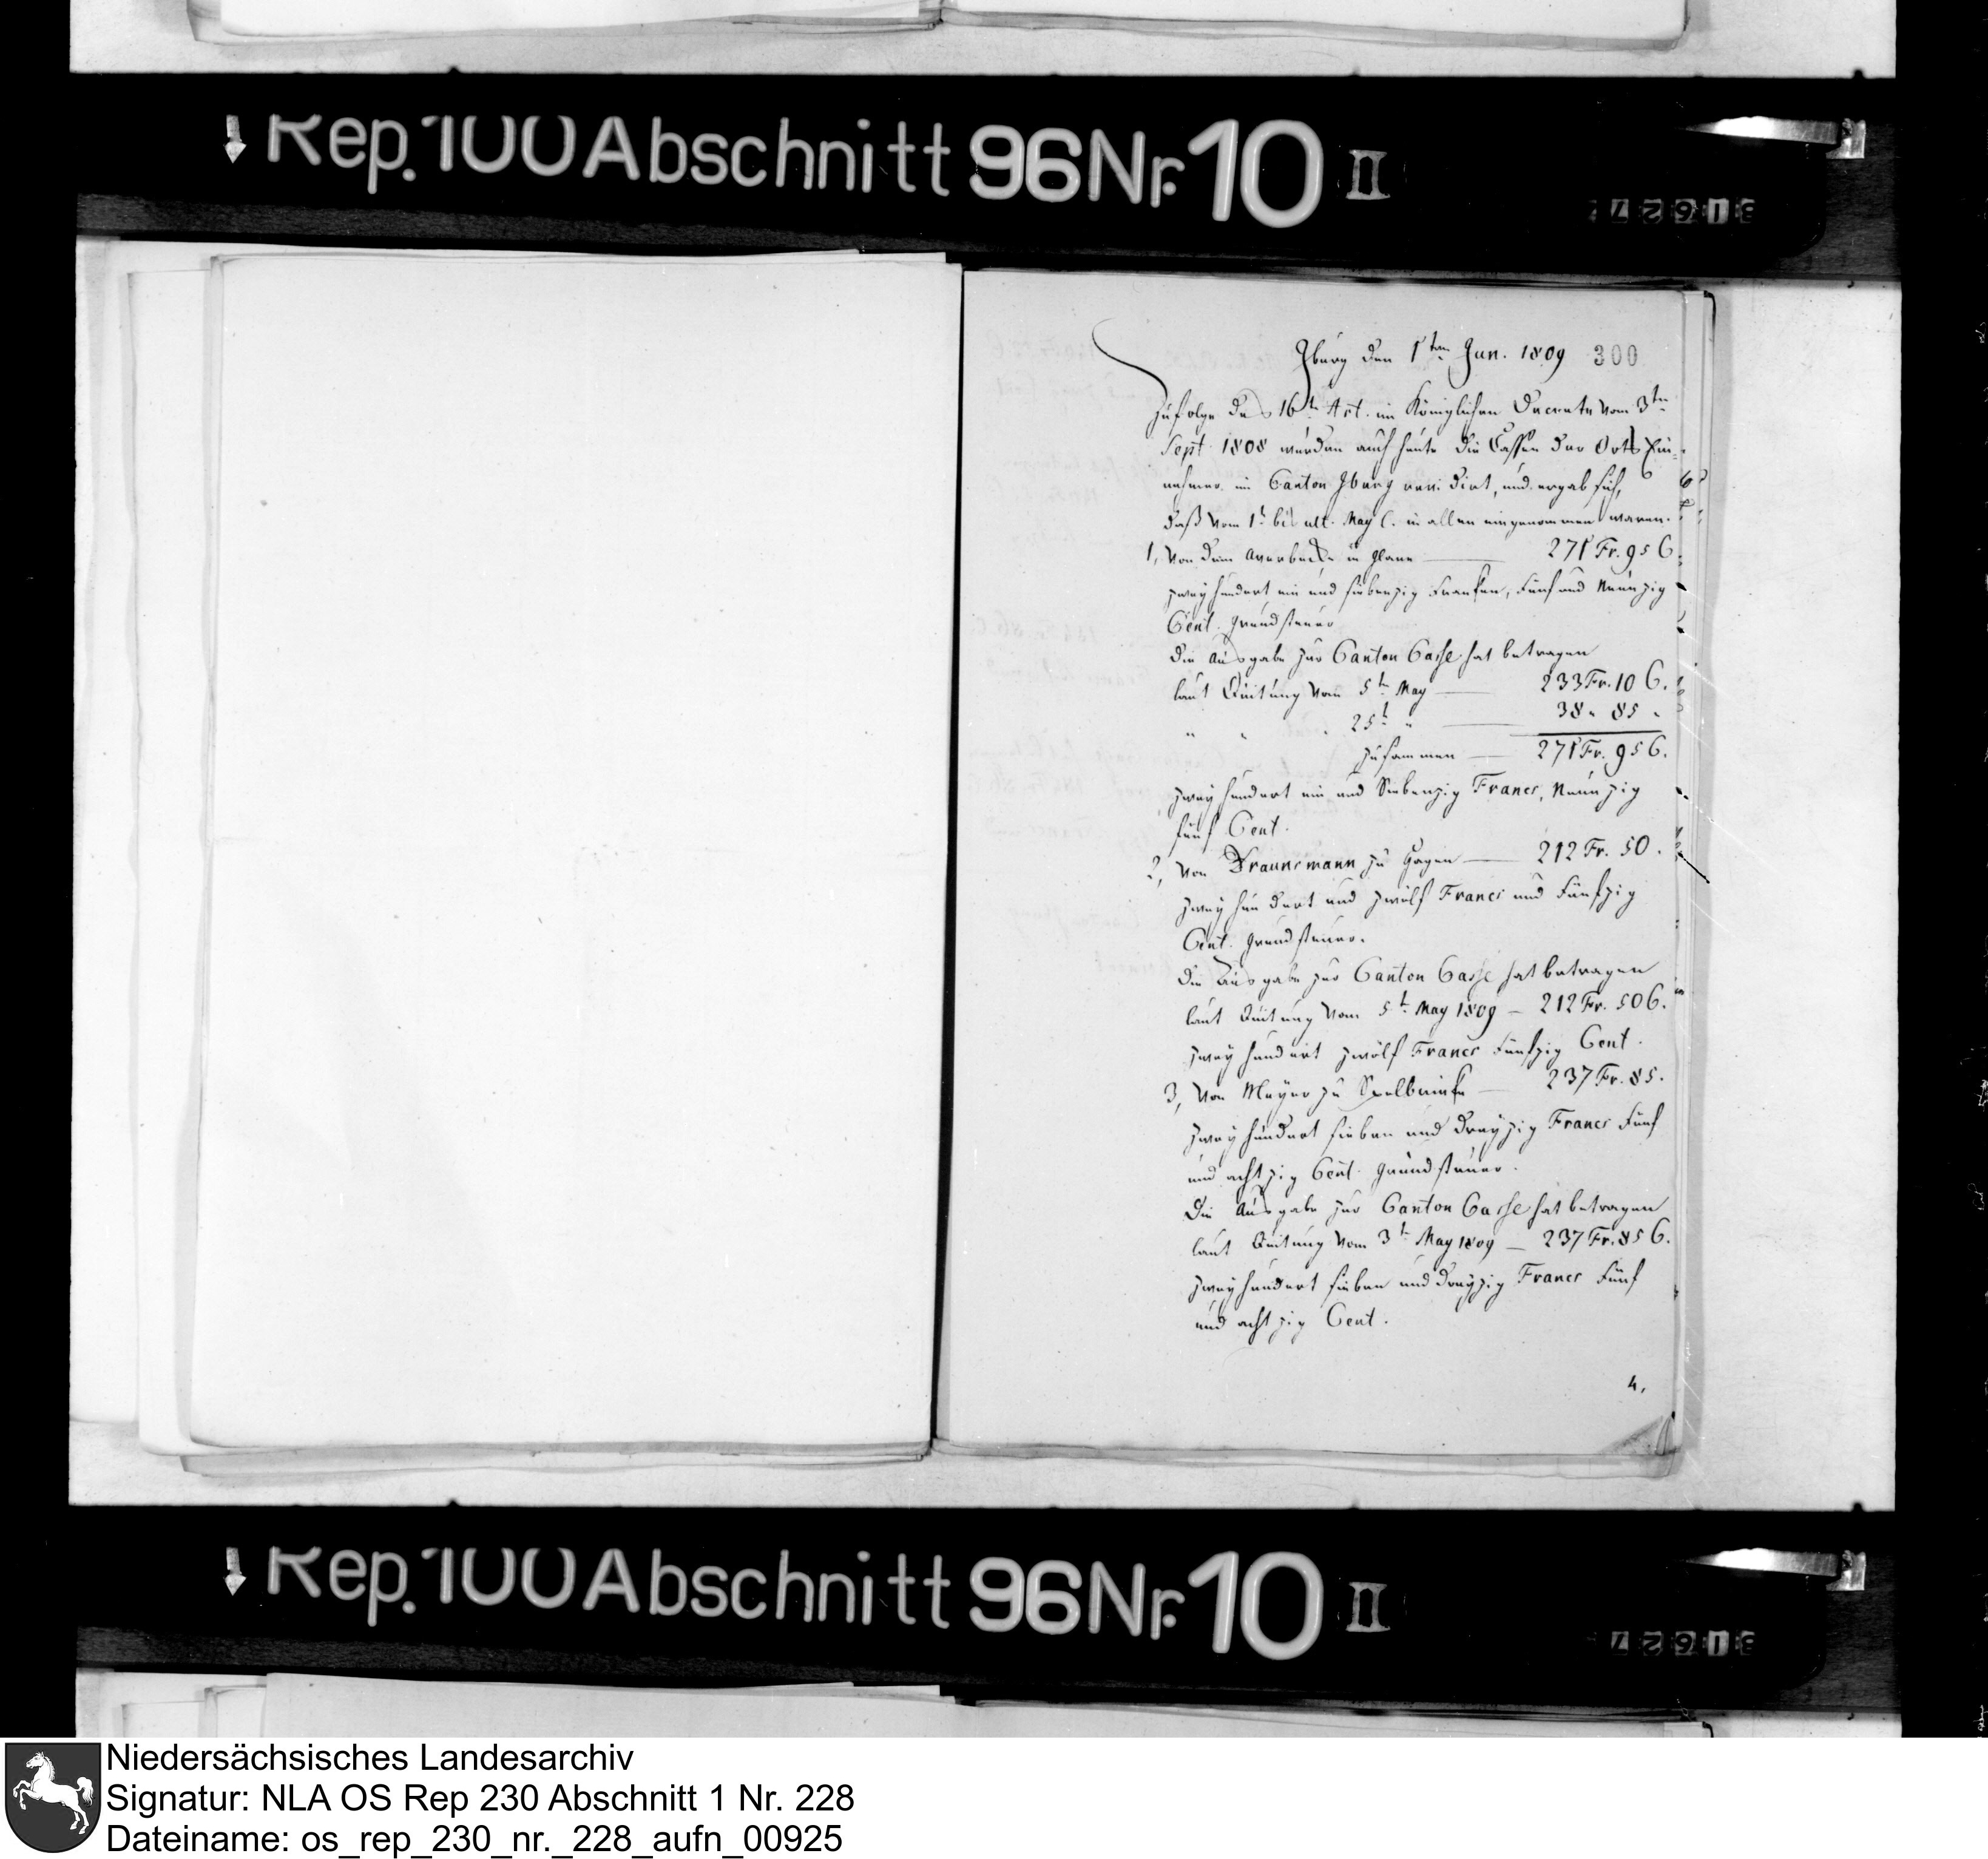 Rep. 100 Abschnitt 96 Nr. 10 II
31627
Iburg den 1ten Jun. 1809 300
Zufolge des 16ten Art. im Königlichen Decrete vom 3ten
Sept 1808 wurden auch heute die Cassen der Orts Ein-
nehmer im Canton Iburg revidirt, und ergab sich,
daß vom 1t bis ult. May c. in allen eingenommen waren.
1, Von dem Averbeck in Glane 271 Fr. 95 C.
zwey hundert ein und siebenzig Franken, Fünf und Neunzig
Cent. Grundsteuer
Die Ausgabe zur Canton Casse hat betragen
laut Quitung vom 5t May 233 Fr. 10 C.
" " 25t " 38 " 85 "
zusammen 271 Fr. 95 C.
zwey hundert ein und Siebenzig Francs, Neunzig
fünf Cent.
2, Von Draunemann zu Hagen 212 Fr. 50.
zwey hundert und zwölf Francs und Fünfzig
Cent. Grundsteuer.
Die Ausgabe zur Canton Casse hat betragen
laut Quitung vom 5t May 1809 – 212 Fr. 50 C.
zwey hundert zwölf Francs Fünfzig Cent.
3, Von Meyer zu 237 Fr. 85.
zwey hundert sieben und dreyzig Francs Fünf
und achtzig Cent. Grundsteuer.
Die Ausgabe zur Canton Casse hat betragen
laut Quitung vom 3t May 1809 – 237 Fr. 85 C.
zwey hundert sieben und dreyzig Francs Fünf
und achtzig Cent.
4,
Rep. 100 Abschnitt 96 Nr. 10 II
31627
Niedersächsisches Landesarchiv
Signatur: NLA OS Rep 230 Abschnitt 1 Nr. 228
Dateiname: os_rep_230_nr._228_aufn_00925